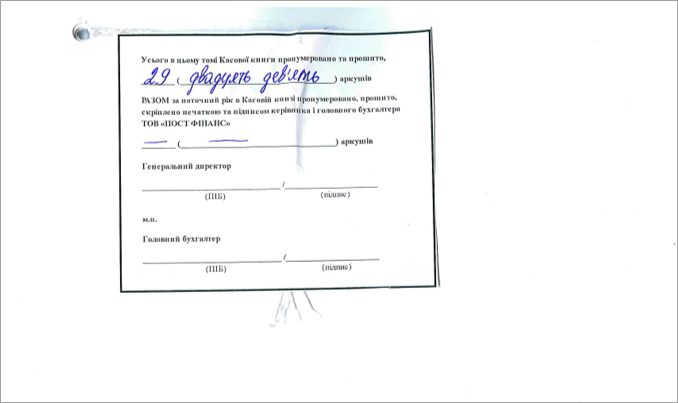 Усього в цьому томі Касової книги пронумеровано та прошито,
29 ( двадцять дев'ять ) аркушів
РАЗОМ за поточний рік в Касовій книзі пронумеровано, прошито,
скріплено печаткою та підписом керівника і головного бухгалтера
ТОВ «ПОСТ ФІНАНС»
— ( — ) аркушів
Генеральний директор
/
(ПІБ) (підпис)
м.п.
Головний бухгалтер
/
(ПІБ) (підпис)